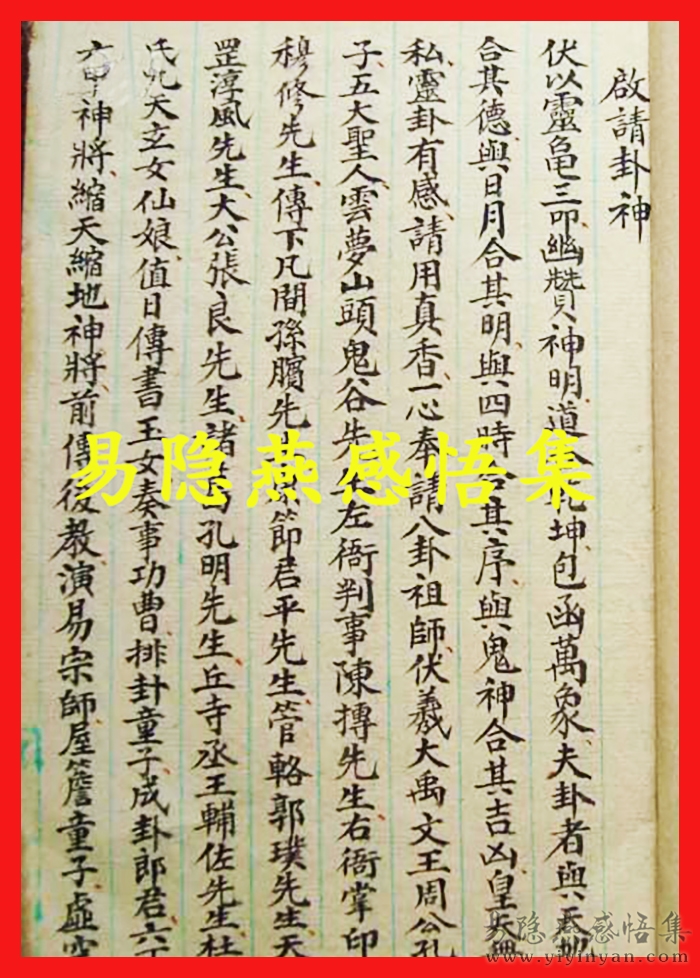 啟請卦神
伏以靈龜三叩幽贊神明道合乾坤包函萬象夫卦者與天地
合其德與日月合其明與四時合其序與鬼神合其吉凶皇天無
私靈卦有感請用真香一心奉請八卦祖師伏羲大禹文王周公孔
子五大聖人雲夢山頭鬼谷先生左衙判事陳摶先生右衙掌印
穆修先生傳下凡間孫臏先 節君平先生管輅郭璞先生天
罡淳風先生大公張良先生諸葛孔明先生丘寺丞王輔佐先生杜
氏九天玄女仙娘值日傳書玉女奏事功曹排卦童子成卦郎君六丁
六甲神將縮天縮地神將前傳後教演易宗師屋簷童子虛空
易隐燕感悟集
易隐燕感悟集
www.yiyinyan.com